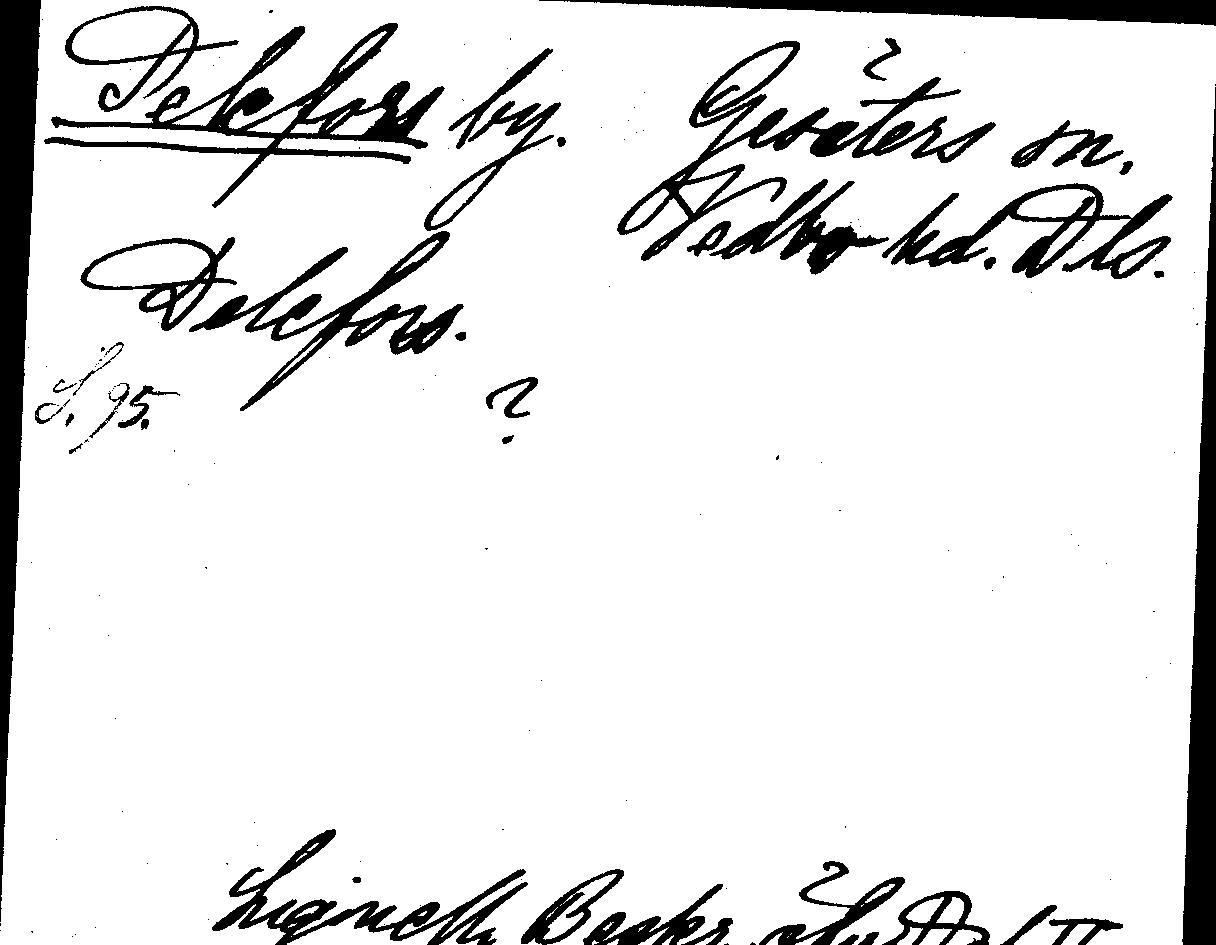 Delefors by. Gesäters sn.
Vedbo hd. Dls.
Delefors.
S. 95. ?
Lignell, Beskr. öfver Dal II